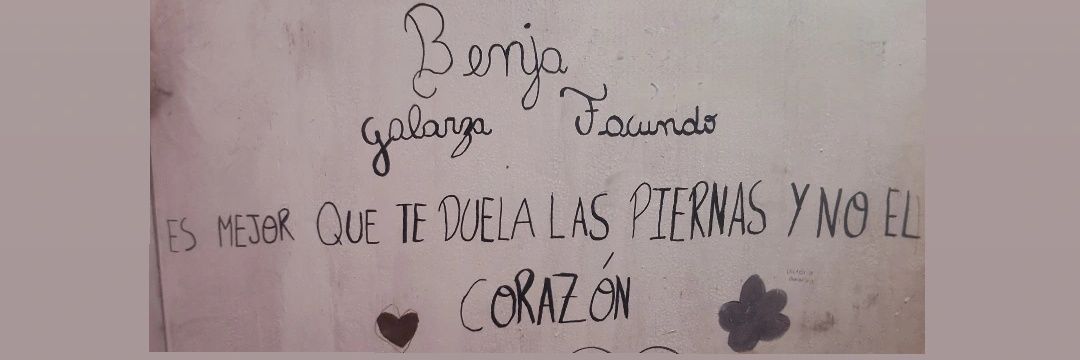 Benja
galarza Facundo
ES MEJOR QUE TE DUELA LAS PIERNAS Y NO EL
CORAZÓN